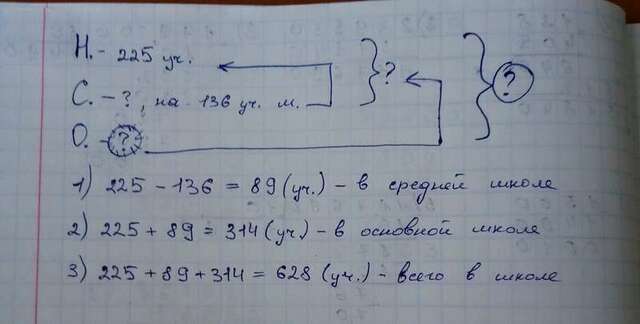 Н. - 225 уч.
С. - ?, на 136 уч. м.
О. - ?
?
?
1) 225 - 136 = 89 (уч.) - в средней школе
2) 225 + 89 = 314 (уч.) - в основной школе
3) 225 + 89 + 314 = 628 (уч.) - всего в школе